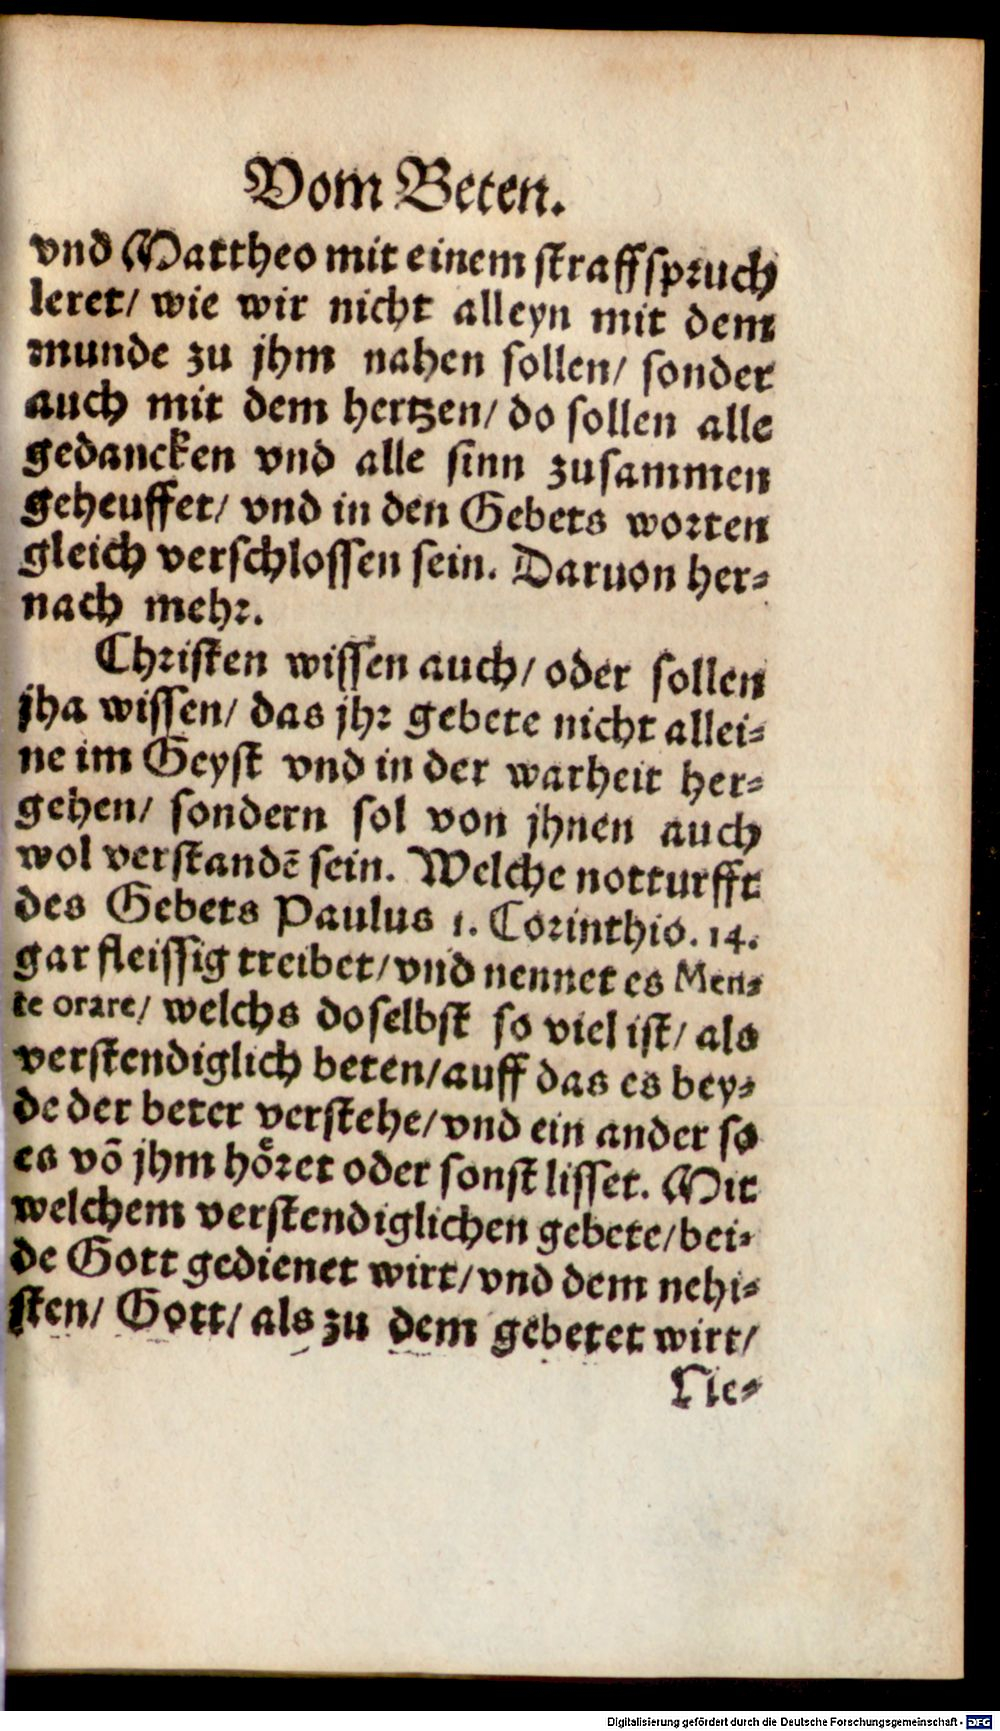 Vom Beten.
vnd Mattheo mit einem straffspruch
leret/ wie wir nicht alleyn mit dem
munde zu jhm nahen sollen/ sonder
auch mit dem hertzen/ do sollen alle
gedancken vnd alle sinn zusammen
geheuffet/ vnd in den Gebets worten
gleich verschlossen sein. Daruon her-
nach mehr.
Christen wissen auch/ oder sollen
jha wissen/ das jhr gebete nicht allei-
ne im Geyst vnd in der warheit her-
gehen/ sondern sol von jhnen auch
wol verstandē sein. Welche notturfft
des Gebets Paulus 1. Corinthio. 14.
gar fleissig treibet/ vnd nennet es Men-
te orare/ welchs doselbst so viel ist/ als
verstendiglich beten/ auff das es bey-
de der beter verstehe/ vnd ein ander so
es võ jhm hoͤret oder sonst lisset. Mit
welchem verstendiglichen gebete/ bei-
de Gott gedienet wirt/ vnd dem nehi-
sten/ Gott/ als zu dem gebetet wirt/
Nie-
Digitalisierung gefördert durch die Deutsche Forschungsgemeinschaft - DFG